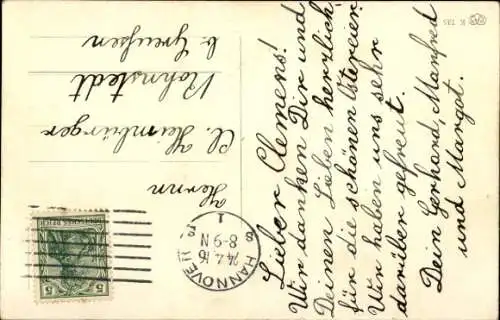 Lieber Clemens!
Wir danken Dir und
Deinen Lieben herzlich
für die schönen Ostereier.
Wir haben uns sehr
darüber gefreut.
Dein Gerhard, Manfred
und Margot.
Herrn
Cl. Heimbürger
Rohnstedt
b. Greußen
HANNOVER
24.4.16
8-9 N
1
DEUTSCHES REICH
5 5